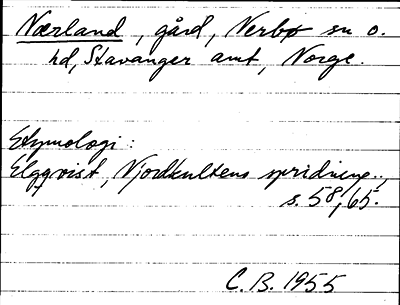 Nærland, gård, Nerbø sn o.
hd, Stavanger amt, Norge.
Etymologi:
Elgqvist, Njordkultens spridning,
s. 58, 65.
C. B. 1955